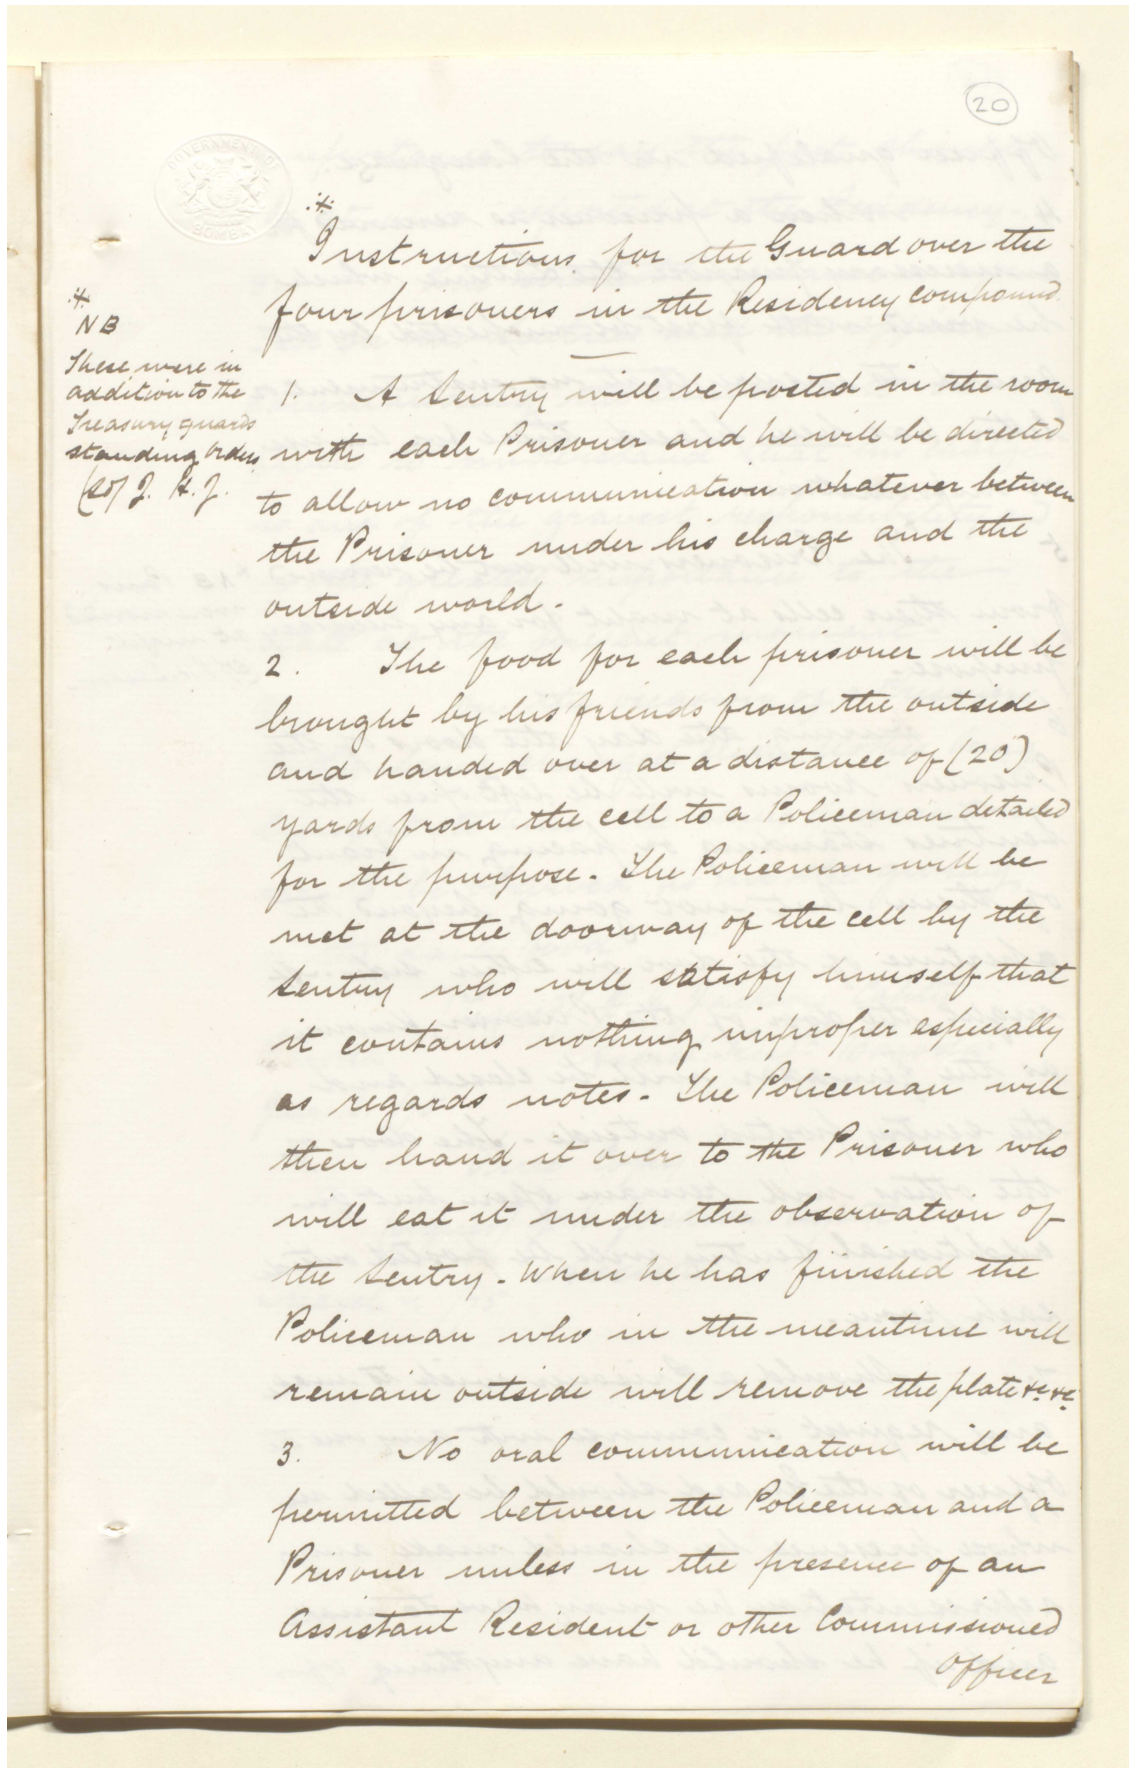 20
GOVERNMENT OF
BOMBAY
Instructions for the Guard over the
four prisoners in the Residency compound.
NB
These were in
addition to the
Treasury guards
standing Orders
(Sd) J. H. J.
1. A Sentry will be posted in the room
with each Prisoner and he will be directed
to allow no communication whatever between
the Prisoner under his charge and the
outside world.
2. The food for each prisoner will be
brought by his friends from the outside
and handed over at a distance of (20)
yards from the cell to a Policeman detailed
for the purpose. The Policeman will be
met at the doorway of the cell by the
Sentry who will satisfy himself that
it contains nothing improper especially
as regards notes. The Policeman will
then hand it over to the Prisoner who
will eat it under the observation of
the Sentry. When he has finished the
Policeman who in the meantime will
remain outside will remove the plate &c &c
3. No oral communication will be
permitted between the Policeman and a
Prisoner unless in the presence of an
Assistant Resident or other Commissioned
Officer